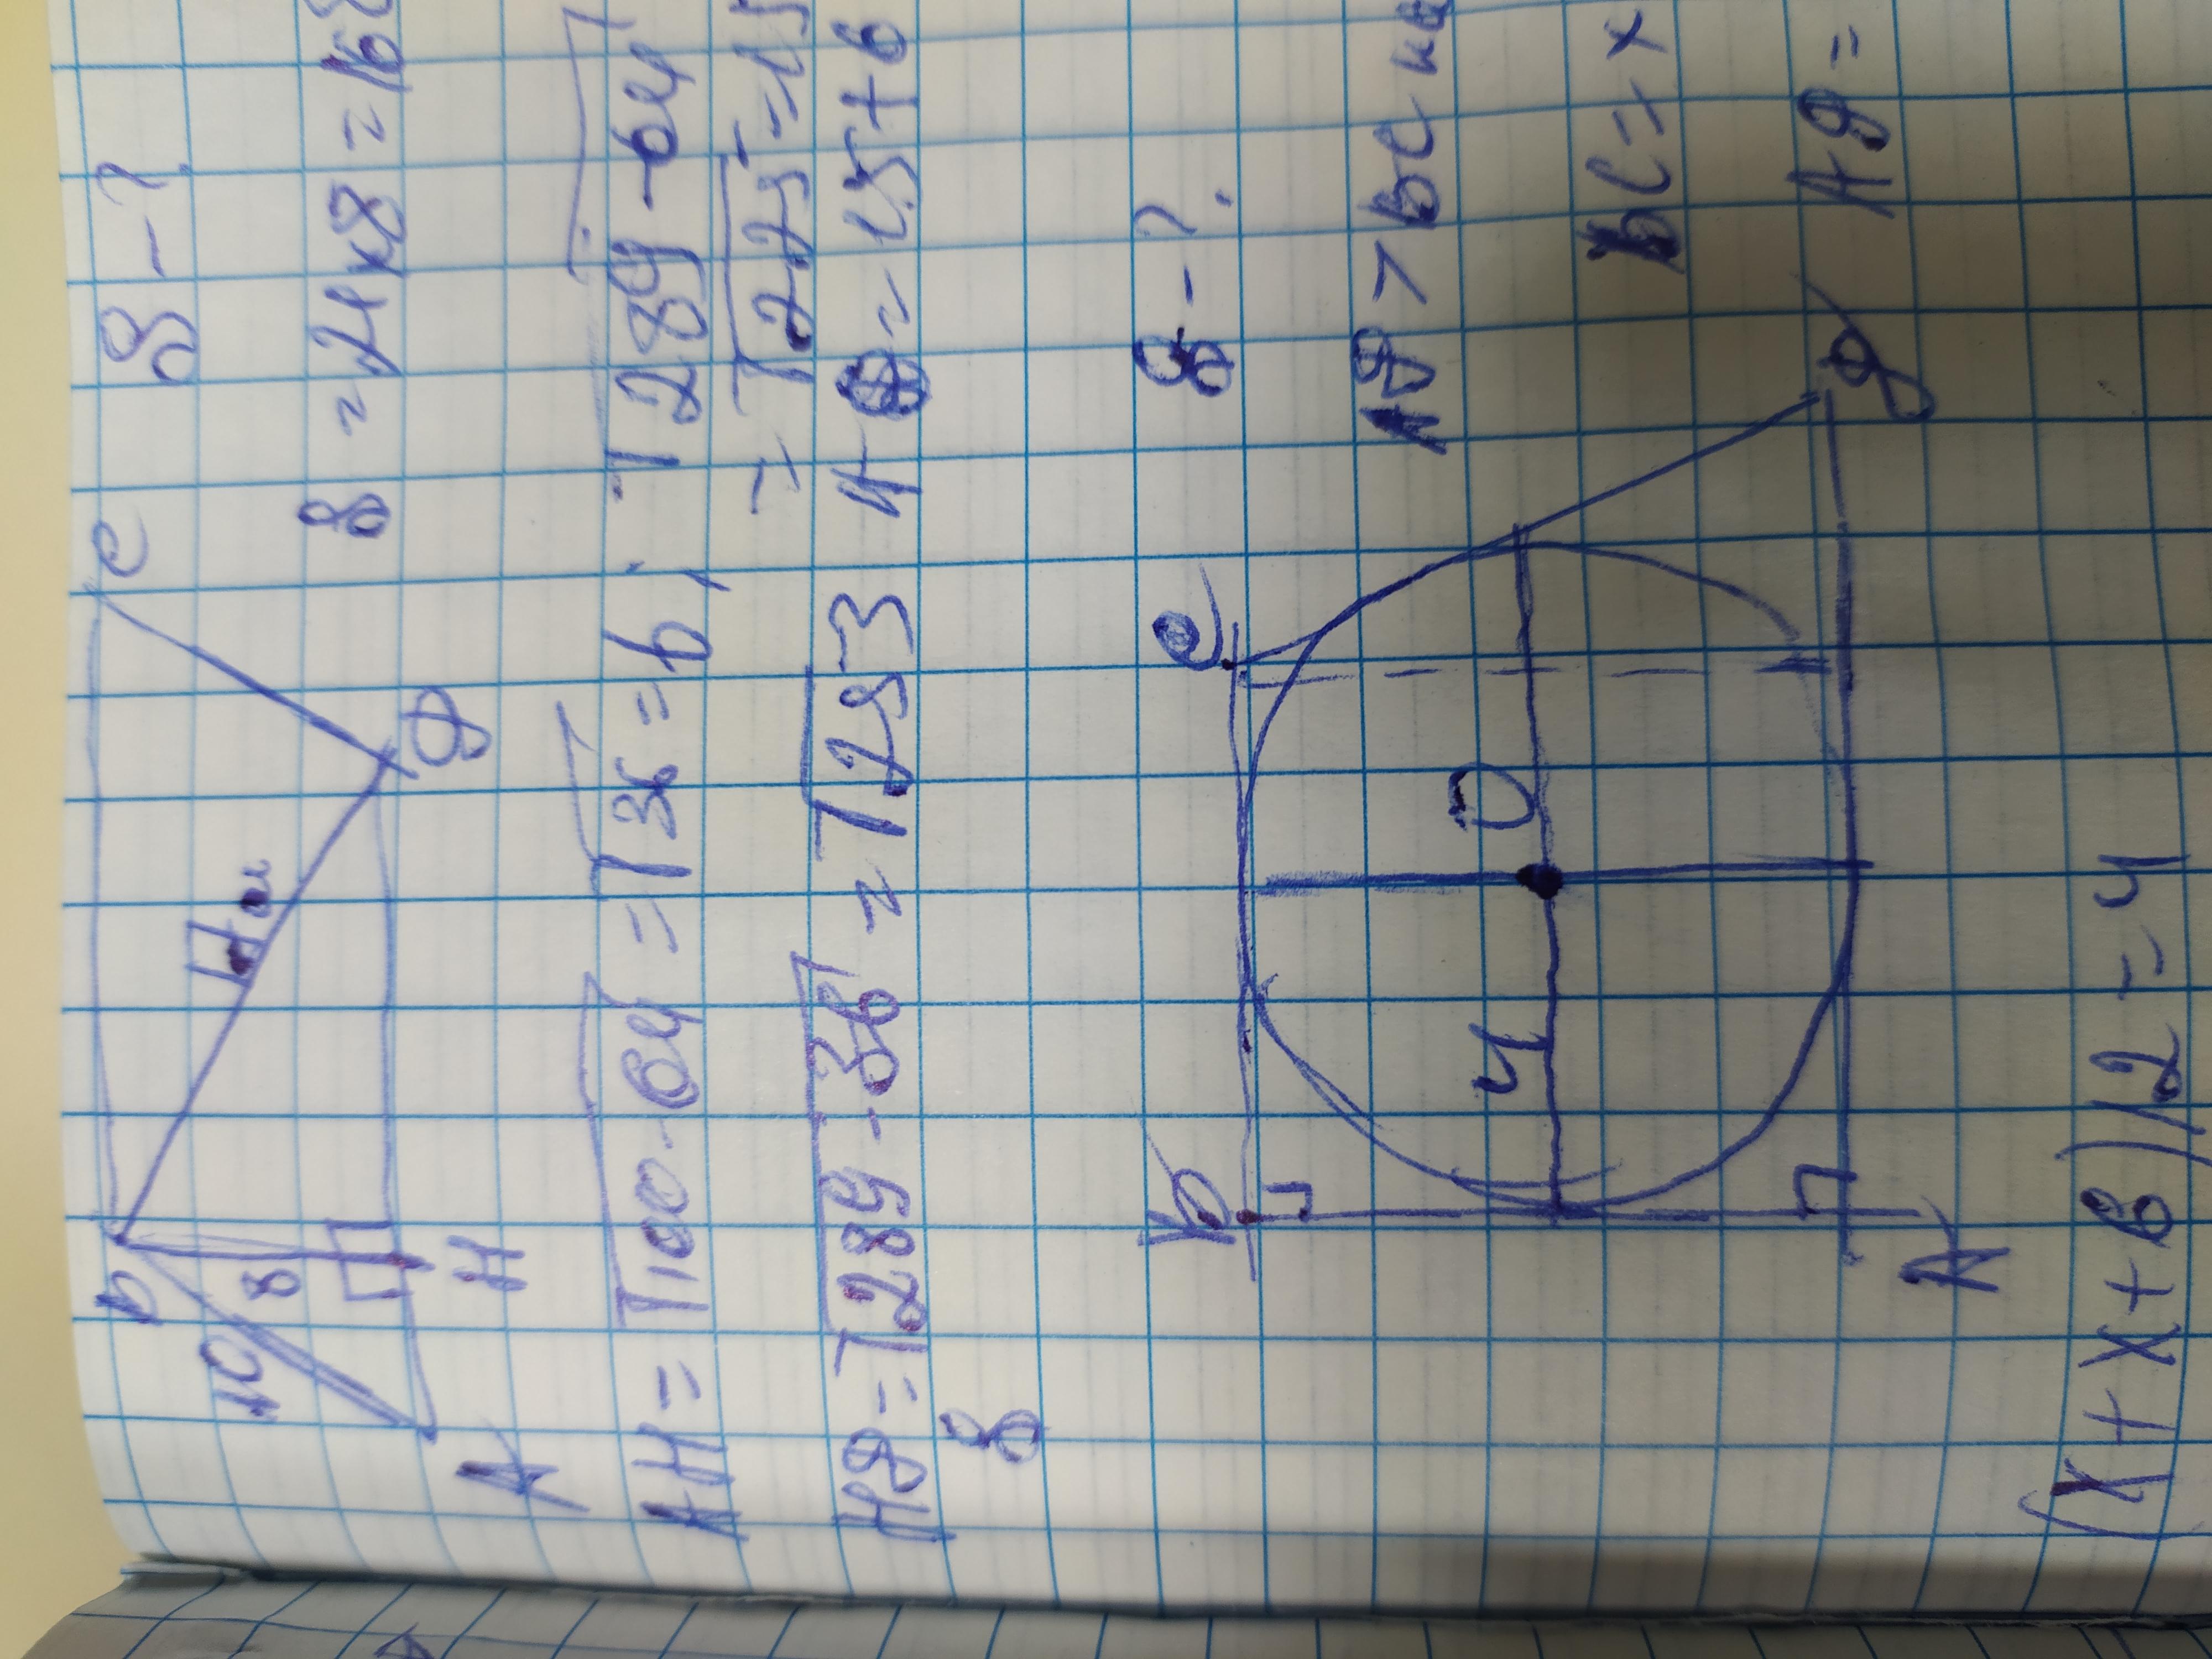 B C S - ?
10 8 17 см
A H D
S = 21 x 8 = 168
AH = √100-64 = √36 = 6, √289-64
= √225 = 15
HD = √289-36 = √253 AD = 15+6
S
B C S - ?
AD > BC на
4 O
BC = x
A D AD =
(x+x+6)/2 = 4